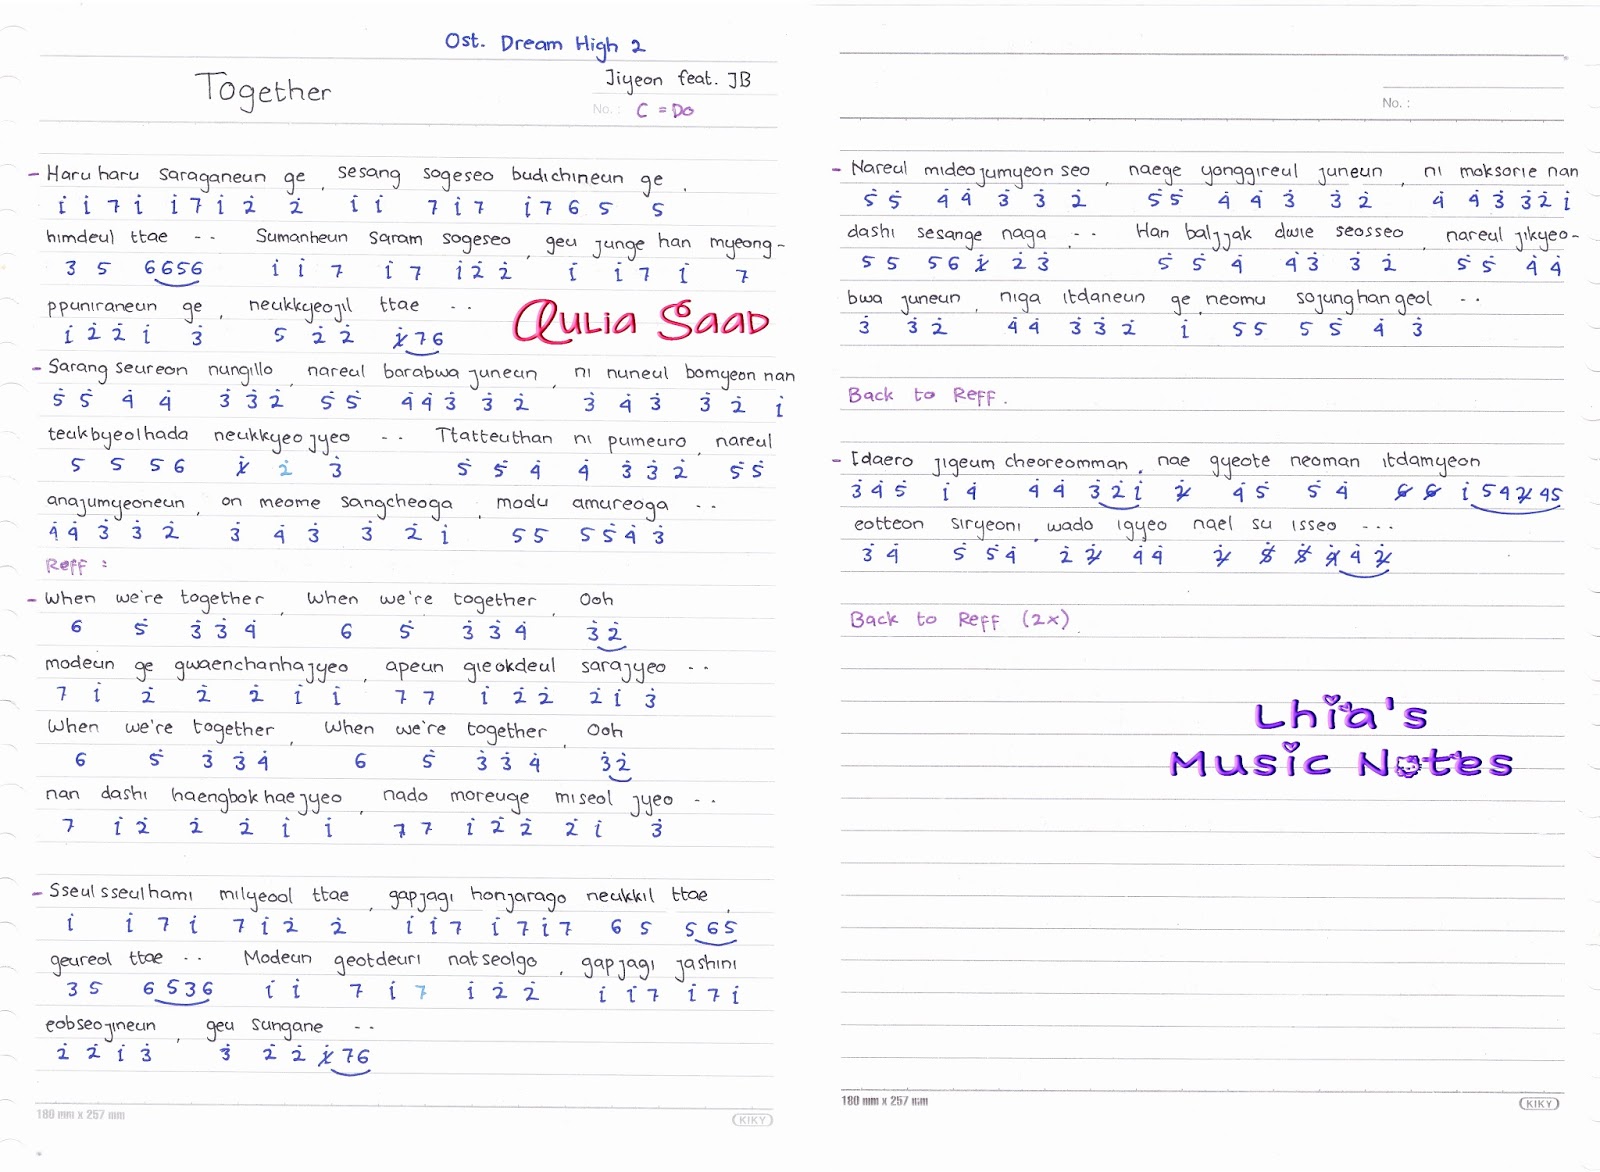 Ost. Dream High 2
Together
Jiyeon feat. JB
No. : C = Do
- Haru haru saraganeun ge , sesang sogeseo budichineun ge ,
1̇ 1̇ 7 1̇ 1̇ 7 1̇ 2̇ 2̇ 1̇ 1̇ 7 1̇ 7 1̇ 7 6 5 5
himdeul ttae -- Sumanheun saram sogeseo , geu junge han myeong-
3 5 6656 1̇ 1̇ 7 1̇ 7 1̇ 2̇ 2̇ 1̇ 1̇ 7 1̇ 7
ppuniraneun ge , neukkyeojil ttae --
1̇ 2̇ 2̇ 1̇ 3̇ 5 2̇ 2̇ 1̸̇76
Aulia Saad
- Sarang seureon nungillo , nareul barabwa juneun , ni nuneul bomyeon nan
5̇ 5̇ 4̇ 4̇ 3̇ 3̇ 2̇ 5̇ 5̇ 4̇ 4̇ 3̇ 3̇ 2̇ 3̇ 4̇ 3̇ 3̇ 2̇ 1̇
teukbyeolhada neukkyeojyeo -- Ttatteuthan ni pumeuro , nareul
5 5 5 6 1̸̇ 2̇ 3̇ 5̇ 5̇ 4̇ 4̇ 3̇ 3̇ 2̇ 5̇ 5̇
anajumyeoneun , on meome sangcheoga , modu amureoga --
4̇ 4̇ 3̇ 3̇ 2̇ 3̇ 4̇ 3̇ 3̇ 2̇ 1̇ 5 5 5̇ 5̇ 4̇ 3̇
Reff :
- When we're together , When we're together , Ooh
6 5̇ 3̇ 3̇ 4̇ 6 5̇ 3̇ 3̇ 4̇ 3̇2̇
modeun ge gwaenchanhajyeo , apeun gieokdeul sarajyeo --
7 1̇ 2̇ 2̇ 2̇ 1̇ 1̇ 7 7 1̇ 2̇ 2̇ 2̇ 1̇ 3̇
When we're together , When we're together , Ooh
6 5̇ 3̇ 3̇ 4̇ 6 5̇ 3̇ 3̇ 4̇ 3̇2̇
nan dashi haengbokhaejyeo , nado moreuge miseoljyeo --
7 1̇ 2̇ 2̇ 2̇ 1̇ 1̇ 7 7 1̇ 2̇ 2̇ 2̇ 1̇ 3̇
- Sseulsseulhami milyeool ttae , gapjagi honjarago neukkil ttae ,
1̇ 1̇ 7 1̇ 7 1̇ 2̇ 2̇ 1̇ 1̇ 7 1̇ 7 1̇ 7 6 5 565
geureol ttae -- Modeun geotdeuri natseolgo , gapjagi jashini
3 5 6536 1̇ 1̇ 7 1̇ 7 1̇ 2̇ 2̇ 1̇ 1̇ 7 1̇ 7 1̇
eobseojineun , geu sungane --
2̇ 2̇ 1̇ 3̇ 3̇ 2̇ 2̇ 1̸̇76
180 mm x 257 mm
KIKY
No. :
- Nareul mideojumyeon seo , naege yonggireul juneun , ni moksorie nan
5̇ 5̇ 4̇ 4̇ 3̇ 3̇ 2̇ 5̇ 5̇ 4̇ 4̇ 3̇ 3̇ 2̇ 4̇ 4̇ 3̇ 3̇ 2̇ 1̇
dashi sesange naga -- Han baljjak dwie seosseo , nareul jikyeo-
5 5 5 6 1̸̇ 2̇ 3̇ 5̇ 5̇ 4̇ 4̇ 3̇ 3̇ 2̇ 5̇ 5̇ 4̇ 4̇
bwa juneun , niga itdaneun ge , neomu sojunghan geol --
3̇ 3̇ 2̇ 4̇ 4̇ 3̇ 3̇ 2̇ 1̇ 5 5 5̇ 5̇ 4̇ 3̇
Back to Reff.
- Idaero jigeum cheoreomman , nae gyeote neoman itdamyeon
3̇ 4̇ 5̇ 1̇ 4̇ 4̇ 4̇ 3̇2̇1̇ 2̸̇ 4̇ 5̇ 5̇ 4̇
eotteon siryeoni , wado igyeo nael su isseo ---
3̇ 4̇ 5̇ 5̇ 4̇ 2̇ 2̸̇ 4̇ 4̇
Back to Reff (2x)
Lhia's
Music Notes
180 mm x 257 mm
KIKY